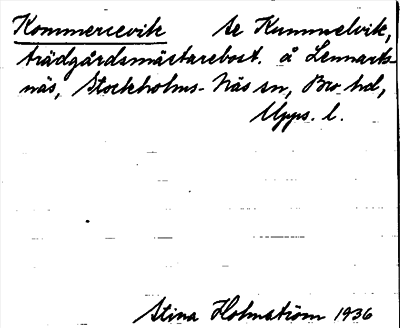 Kommercevik se Kummelvik,
trädgårdsmästarebost. å Lennarts-
näs, Stockholms-Näs sn, Bro hd,
Upps. l.
Stina Holmström 1936